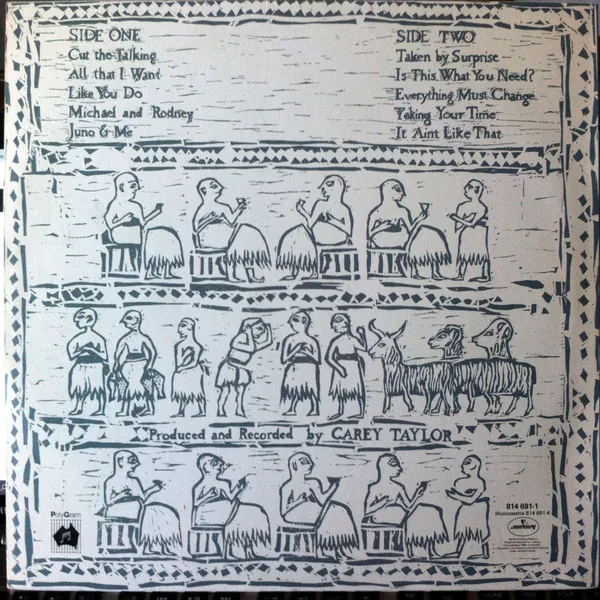 SIDE ONE
Cut the Talking
All that I Want
Like You Do
Michael and Rodney
Juno & Me
SIDE TWO
Taken by Surprise
Is This What You Need?
Everything Must Change
Taking Your Time
It Aint Like That
Produced and Recorded by CAREY TAYLOR
PolyGram
814 691-1
Musicassette 814 691-4
mercury